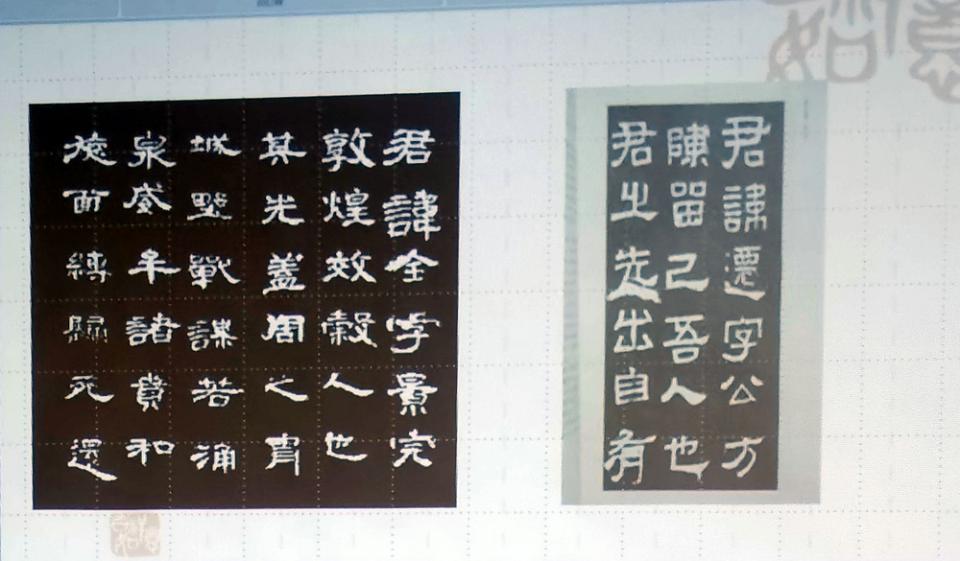 君諱全字景完
敦煌效穀人也
其先蓋周之胄
城野戰謀若涌
泉威牟諸賁和
德面縛歸死還
君諱遷字公方
陳留己吾人也
君之先出自有